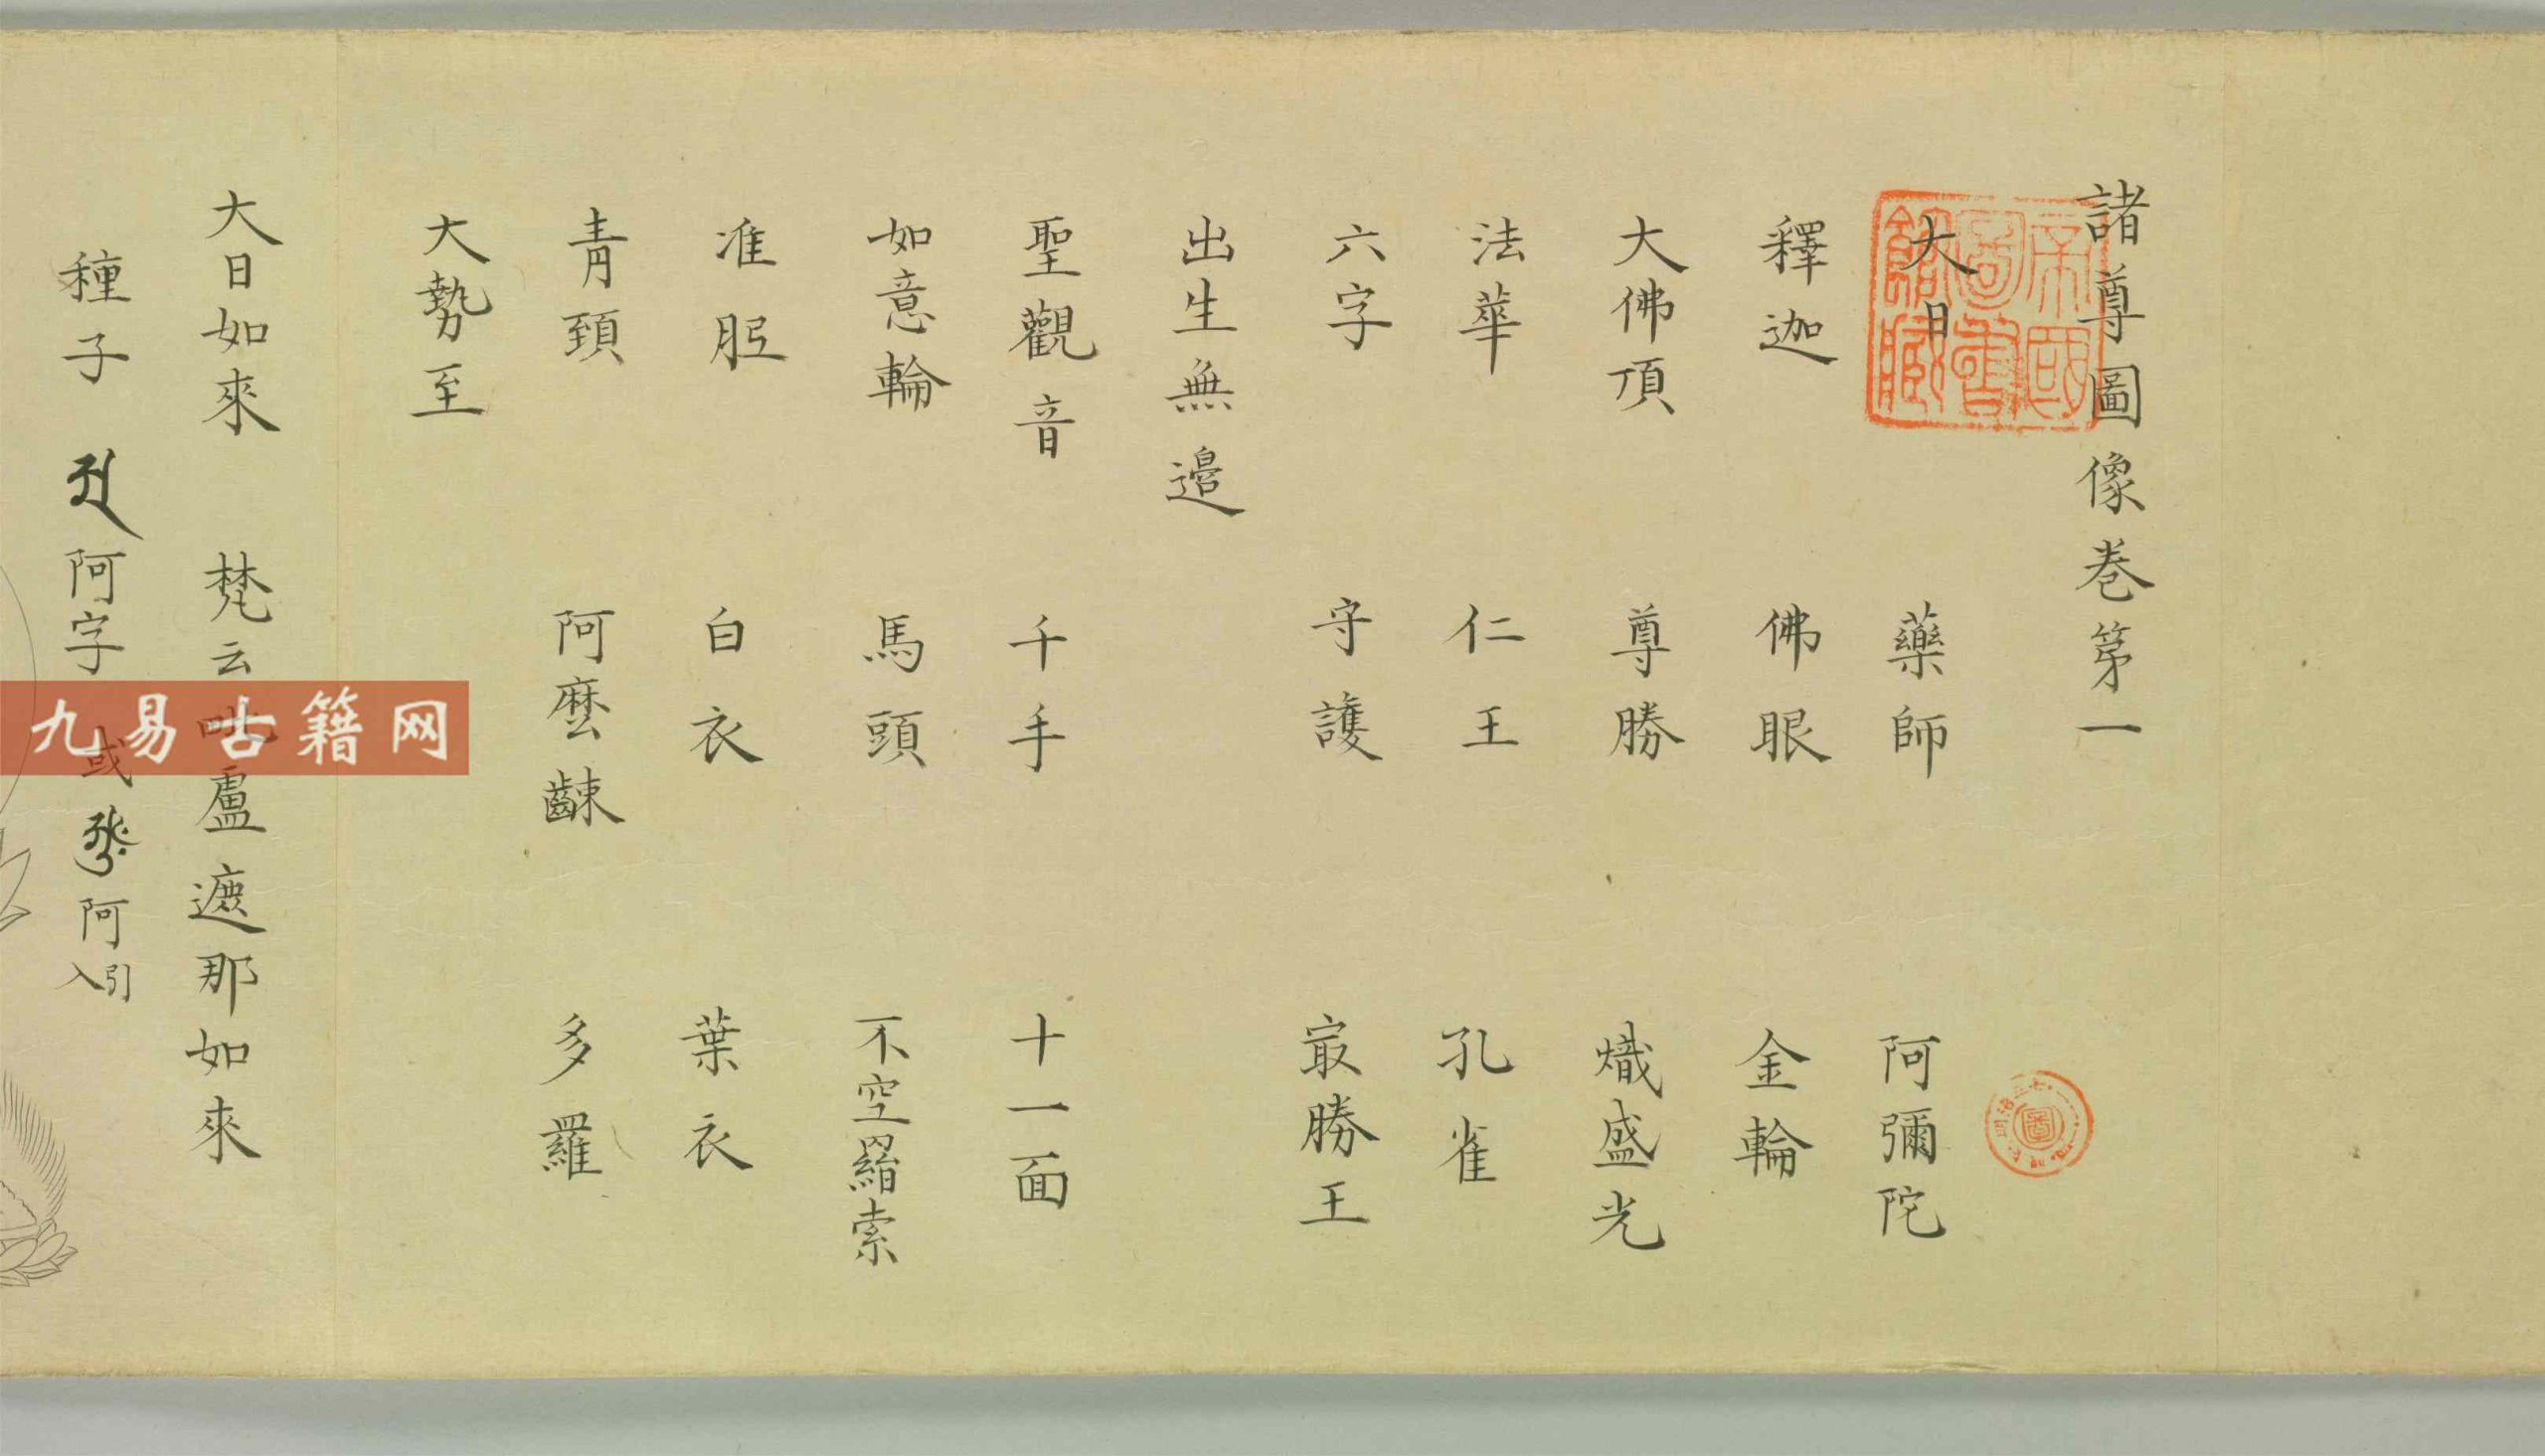 諸尊圖像卷苐一
大日 藥師 阿彌陀
釋迦 佛眼 金輪
大佛頂 尊勝 熾盛光
法華 仁王 孔雀
六字 守護 㝡勝王
出生無邊
聖觀音 千手 十一面
如意輪 馬頭 不空羂索
准胝 白衣 葉衣
青頚 阿麼𪘨 多羅
大勢至
大日如來 梵云毗盧遮那如來
種子 阿字 或 阿引入
帝國圖書館藏
九易古籍网